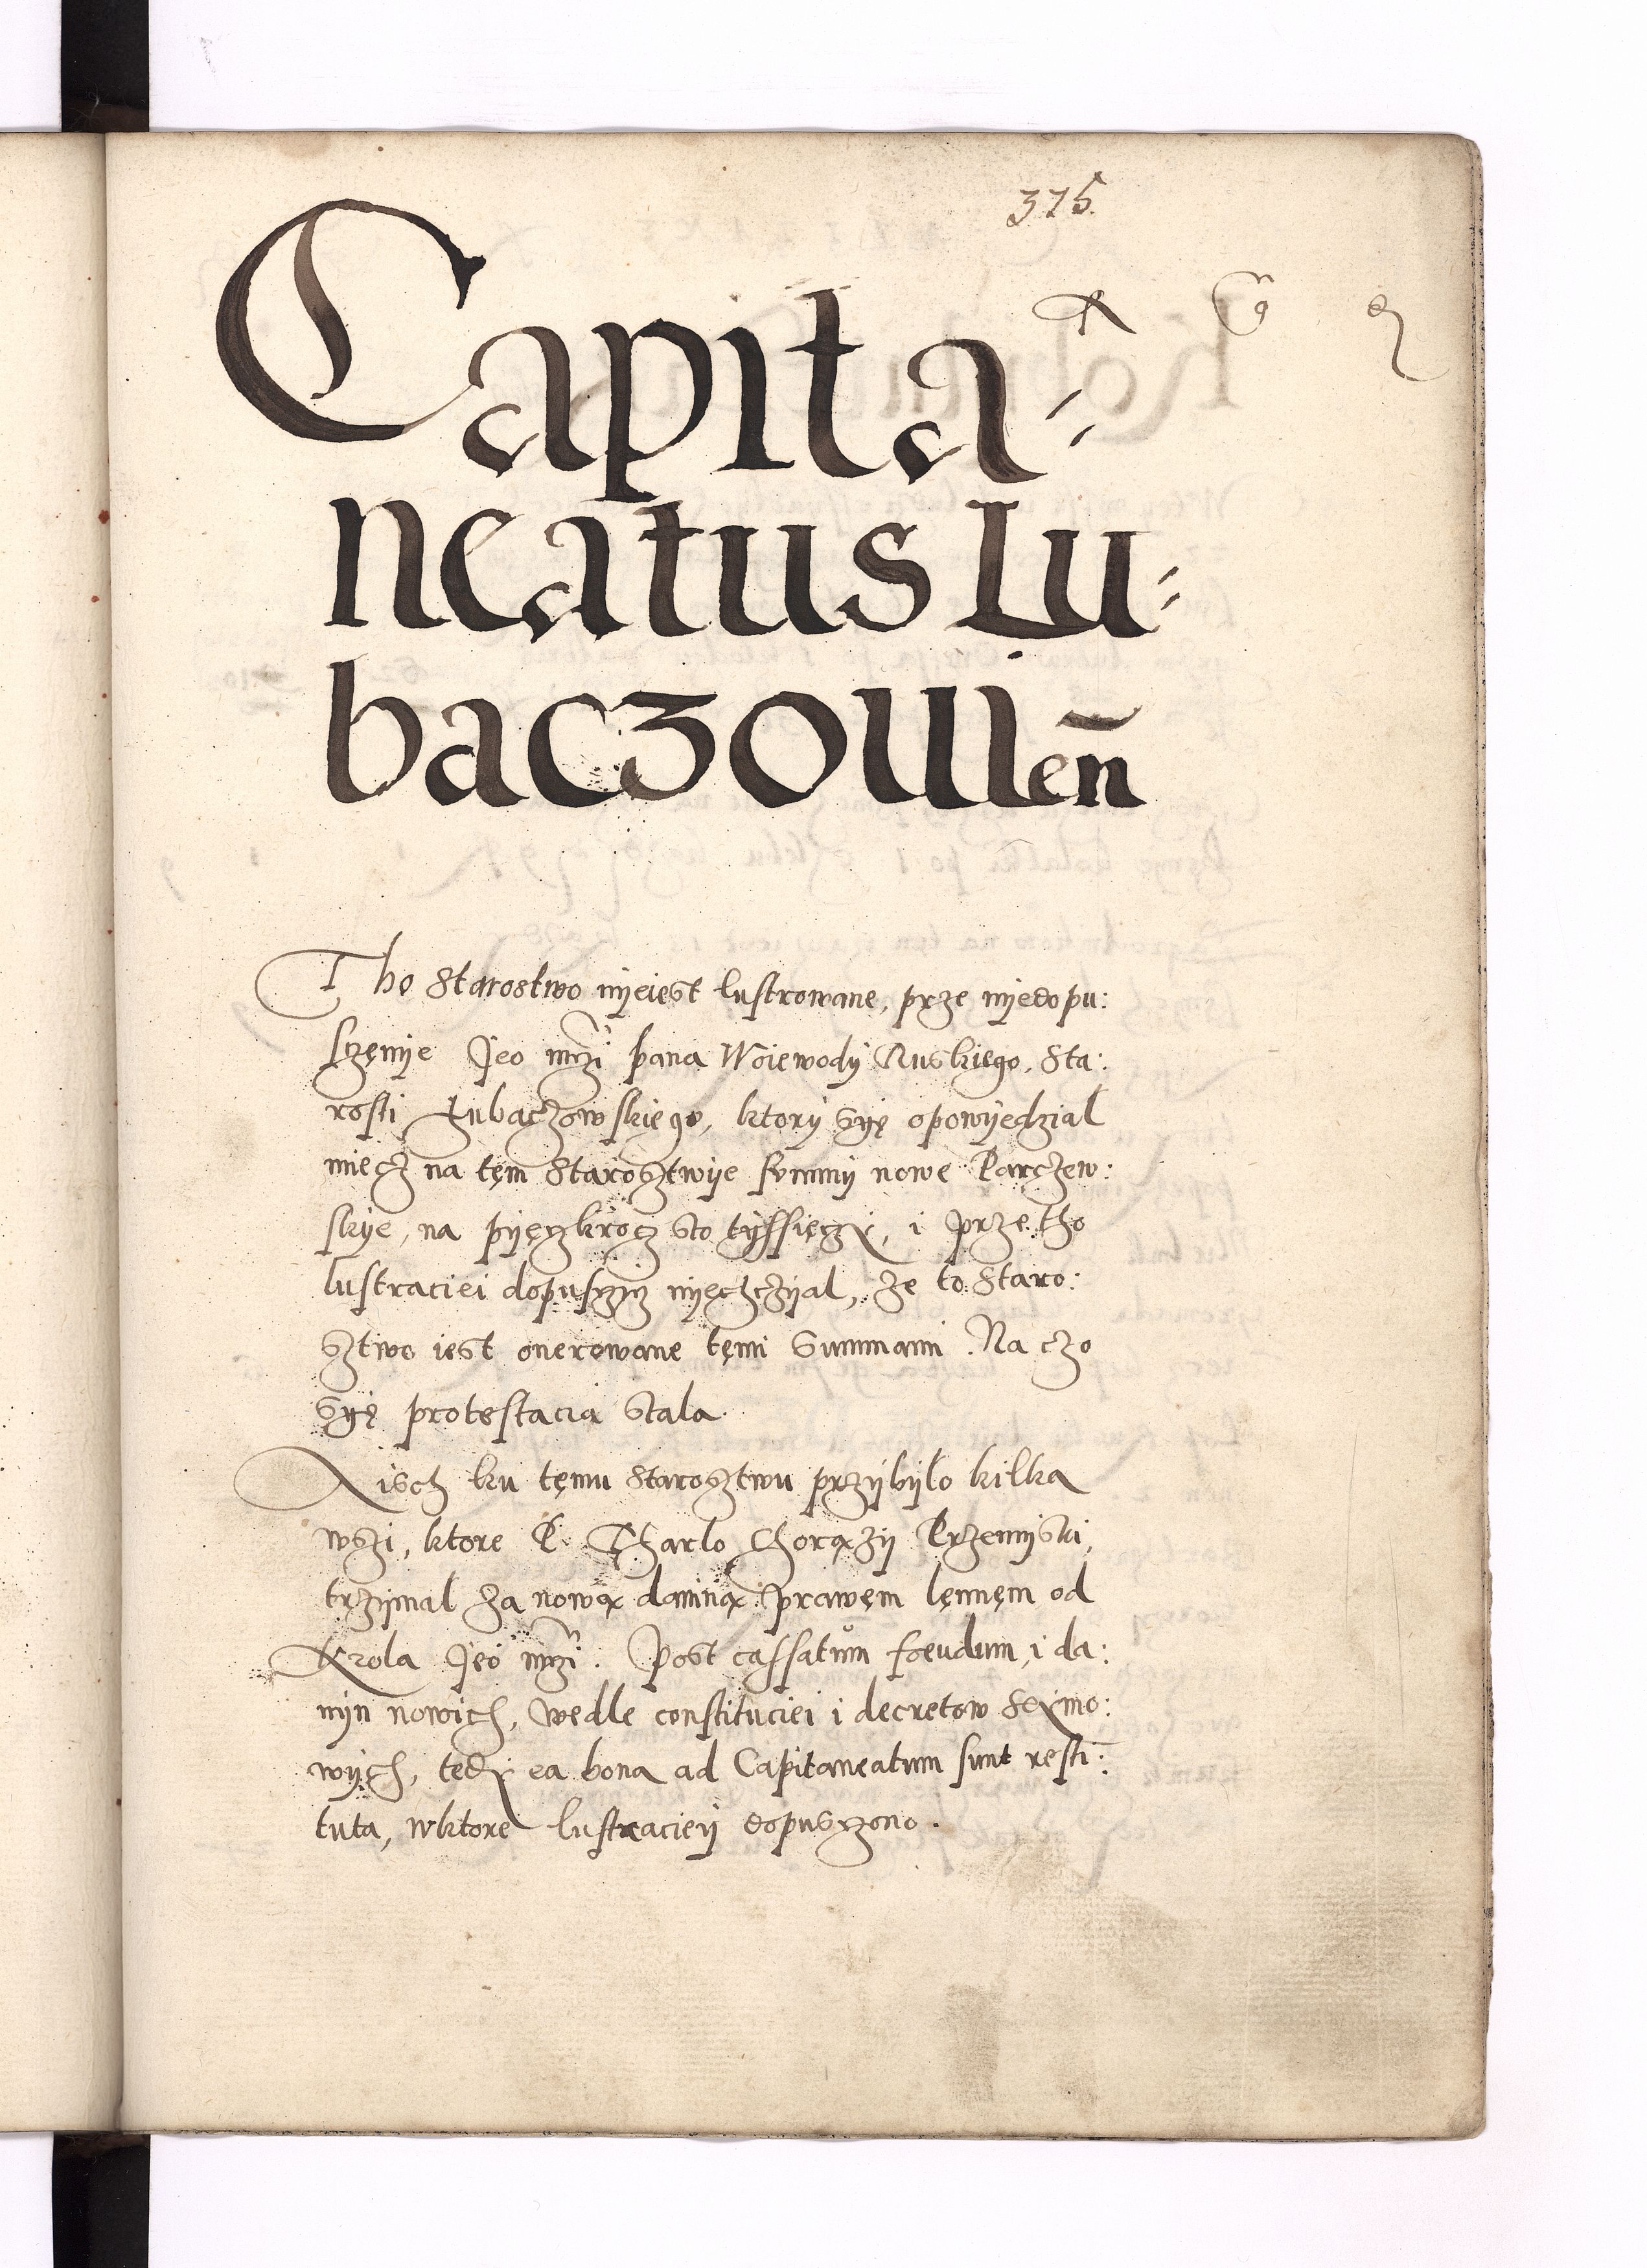 375.
Capita-
neatus Lu-
baczowien̄
Tho Starostwo nyeiest lustrowane, prze nyedopu:
sczęnye Jeo mczi pana Woiewody Ruskiego, Sta:
rosti Lubaczowskiego, ktory syę opowyedzial
miecz na tęm Starosztwye summy nowe Parczew:
skye, na pyęczkrocz sto tyssięczy, i prze tho
lustraciei dopusczicz nyechczyal, że to Staro:
sztwo iest onerowane tęmi Summami. Na czo
syę protestacia stala.
A isch ku tęmu Starosztwu przybylo kilka
wszi, ktore P. Tharlo Chorąży Przemyski,
trzymal za nową daniną prawęm lęnnęm od
Krola Jeo mczi. Post cassatum foeudum, i da:
nyn nowich, wedle constituciei i decretow Seymo:
wych, tedy ea bona ad Capitaneatum sunt resti:
tuta, wktore lustraciey dopusczono.